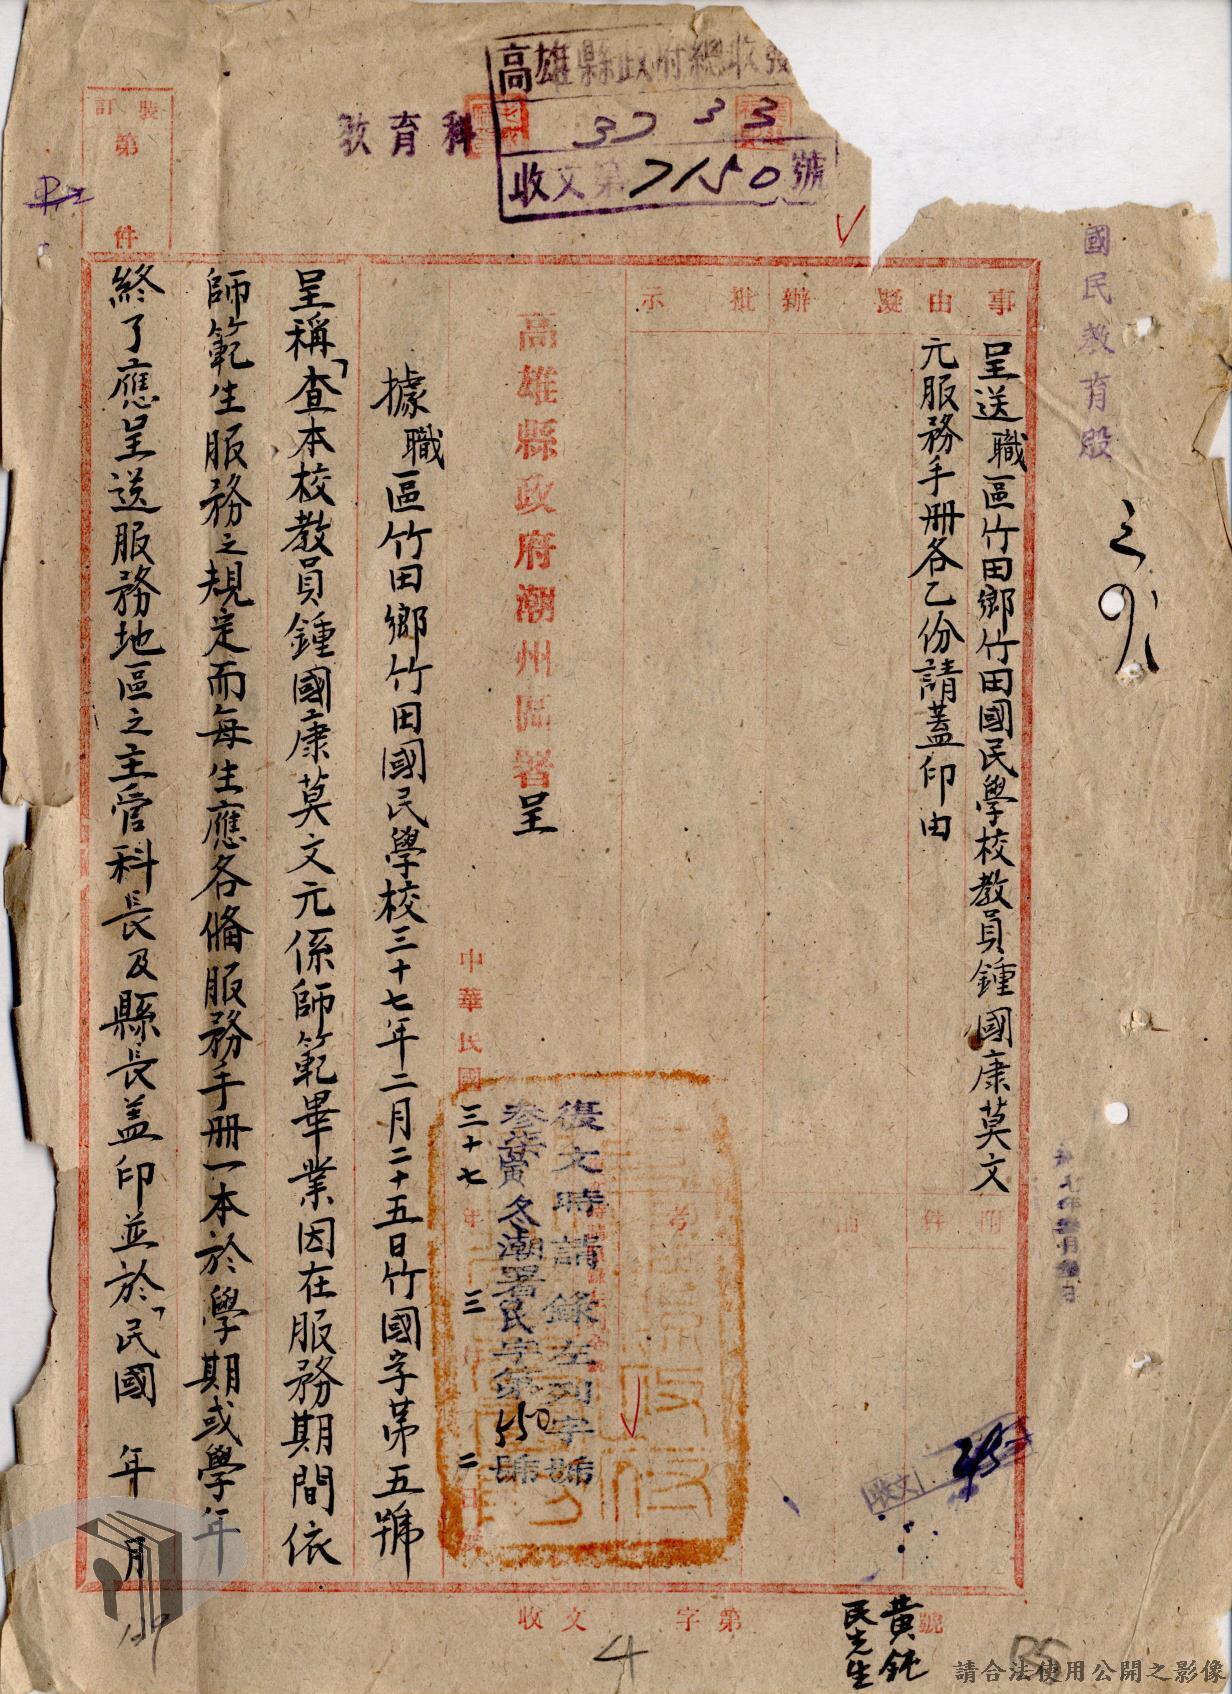 高雄縣政府總收發
37 3 3
收文第7150號
教育科
裝訂
第
件
國民教育股
事由
擬辦
批示
呈送職區竹田鄉竹田國民學校教員鍾國康莫文
元服務手冊各乙份請蓋印由
附件
備考
高雄縣政府潮州區署呈
復文時請錄左列字號
冬潮署民字第550號
中華民國三十七年三月二日
據職區竹田鄉竹田國民學校三十七年二月二十五日竹國字第五號
呈稱「查本校教員鍾國康莫文元係師範畢業因在服務期間依
師範生服務之規定而每生應各備服務手冊一本於學期或學年
終了應呈送服務地區之主管科長及縣長盖印並於「民國 年 月
收文
收文 字第 號
黃鈍
民先生
4
請合法使用公開之影像